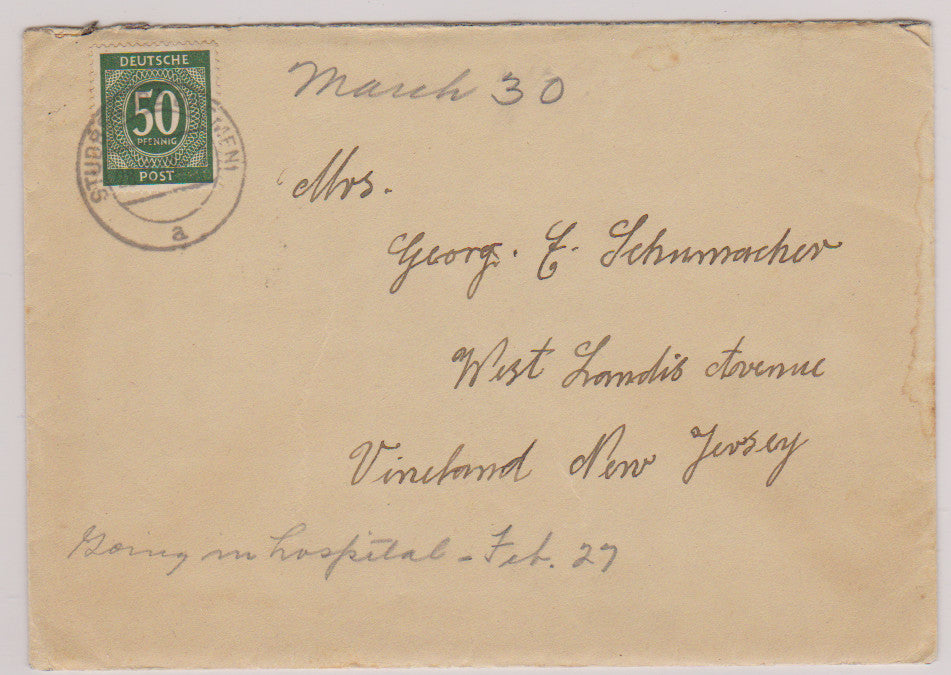 DEUTSCHE
50
PFENNIG
POST
a
March 30
Mrs.
Georg. E. Schumacher
West Landis Avenue
Vineland New Jersey
Going in hospital - Feb. 27